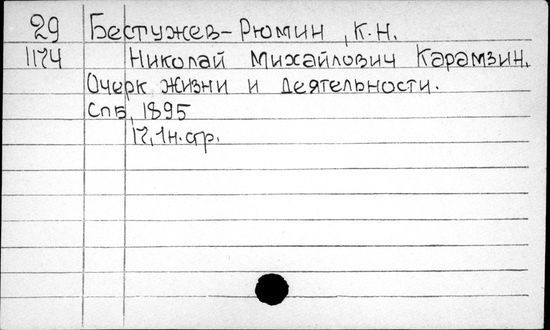 29 Бестужев-Рюмин, К.Н.
1174 Николай Михайлович Карамзин.
Очерк жизни и деятельности.
СПБ, 1895
17, 1 н. стр.